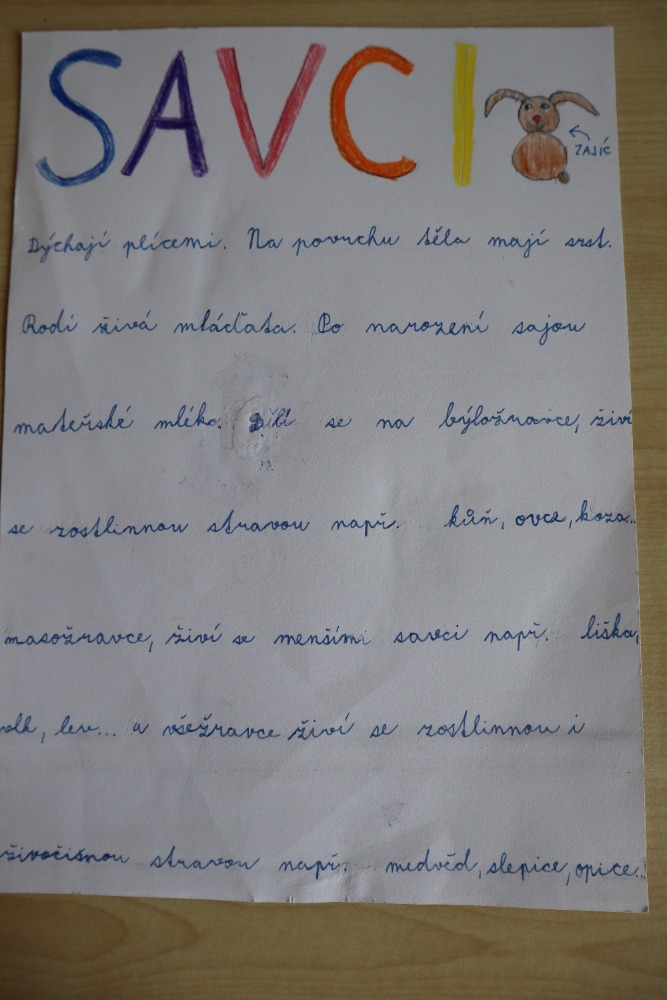 SAVCI
ZAJÍC
Dýchají plícemi. Na povrchu těla mají srst.
Rodí živá mláďata. Po narození sajou
mateřské mléko. Dělí se na býložravce, živí
se rostlinnou stravou např. kůň, ovce, koza...
masožravce, živí se menšími savci např. liška,
vlk, lev... a všežravce živí se rostlinnou i
živočišnou stravou např. medvěd, slepice, opice...